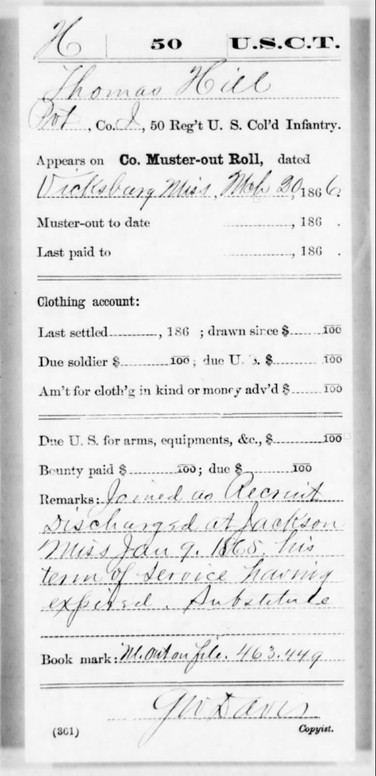 H | 50 | U.S.C.T.
Thomas Hill
Pvt, Co. I, 50 Reg't U. S. Col'd Infantry.
Appears on Co. Muster-out Roll, dated
Vicksburg Miss, Mch 20, 1866.
Muster-out to date ........, 186 .
Last paid to ........, 186 .
Clothing account:
Last settled ........, 186 ; drawn since $ ........ 100
Due soldier $ ........ 100; due U. S. $ ........ 100
Am't for cloth'g in kind or money adv'd $ ........ 100
Due U. S. for arms, equipments, &c., $ ........ 100
Bounty paid $ ........ 100; due $ ........ 100
Remarks: Joined as Recruit
Discharged at Jackson
Miss Jan 9. 1865. his
term of service having
expired. Substitute
Book mark: M. out on file. 463.449
G W Davis
(361) Copyist.